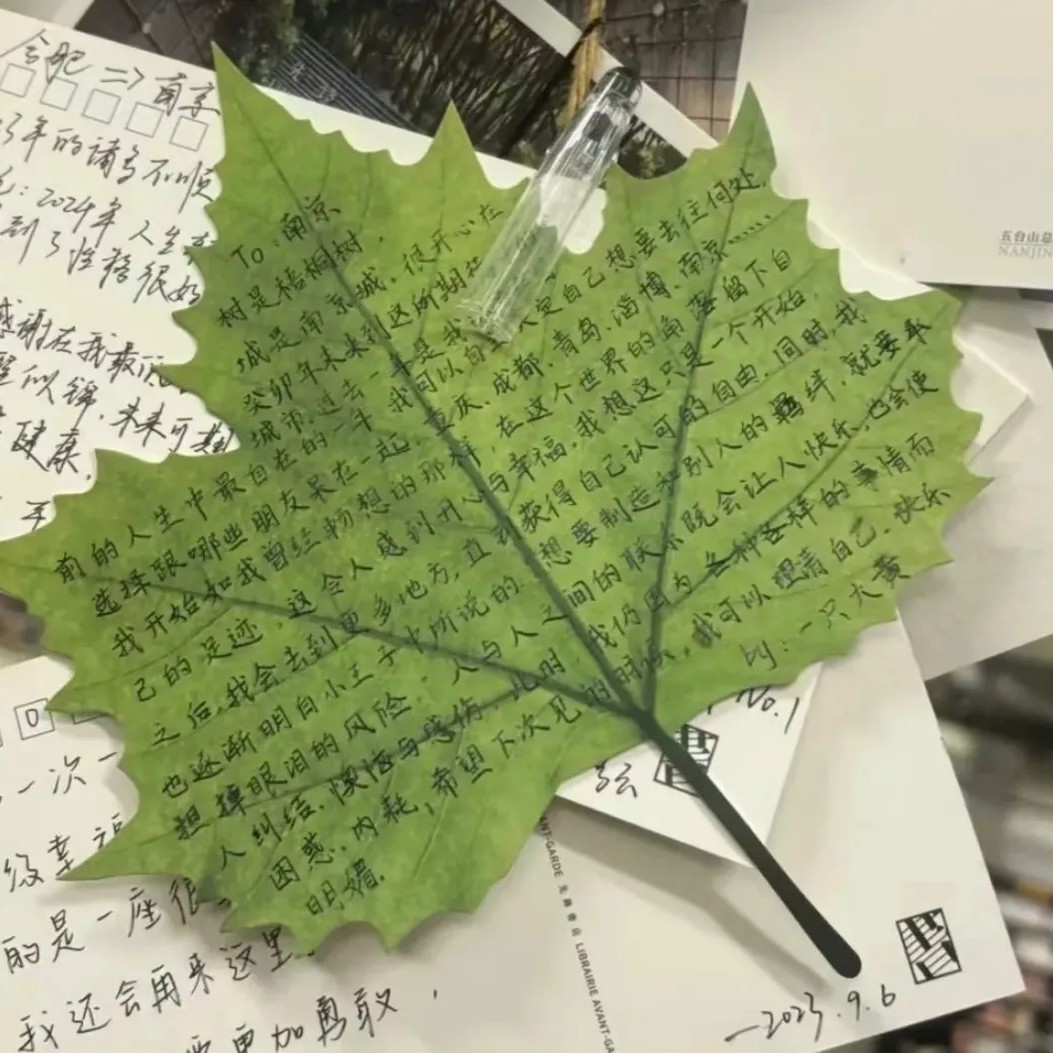 合肥 => 南京
3年的诸多不顺
2024年 人生
到了性格很好
感谢在我最
似锦,未来可期
健康,
年
五台山总
NANJIN
To:南京
树是梧桐树,
城是南京城。很开心在
癸卯年末来到这所期待
城市,过去一年是我
前的人生中最自在的一年,我可以自 决定自己想要去往何处,
选择跟哪些朋友呆在一起。重庆、成都、青岛、淄博、南京......
我开始如我曾经畅想的那样,在这个世界的角落留下自
己的足迹。这会令人感到开心与幸福,我想这只是一个开始。
之后,我会去到更多地方,直到获得自己认可的自由。同时,我
也逐渐明白小王子中所说的:想要制造和别人的羁绊,就要承
担掉眼泪的风险。人与人之间的联系既会让人快乐,也会使
人纠结、懊悔与感伤。此时,我仍因为各种各样的事情而
困惑、内耗,希望下次见的时候,我可以理清自己、快乐
明媚。
by:一只大黄
No.1
一次一
级幸福
的是一座很
我还会再来这里
更加勇敢,
AVANT-GARDE 先锋书店 LIBRAIRIE AVANT-GA
书
—2023.9.6